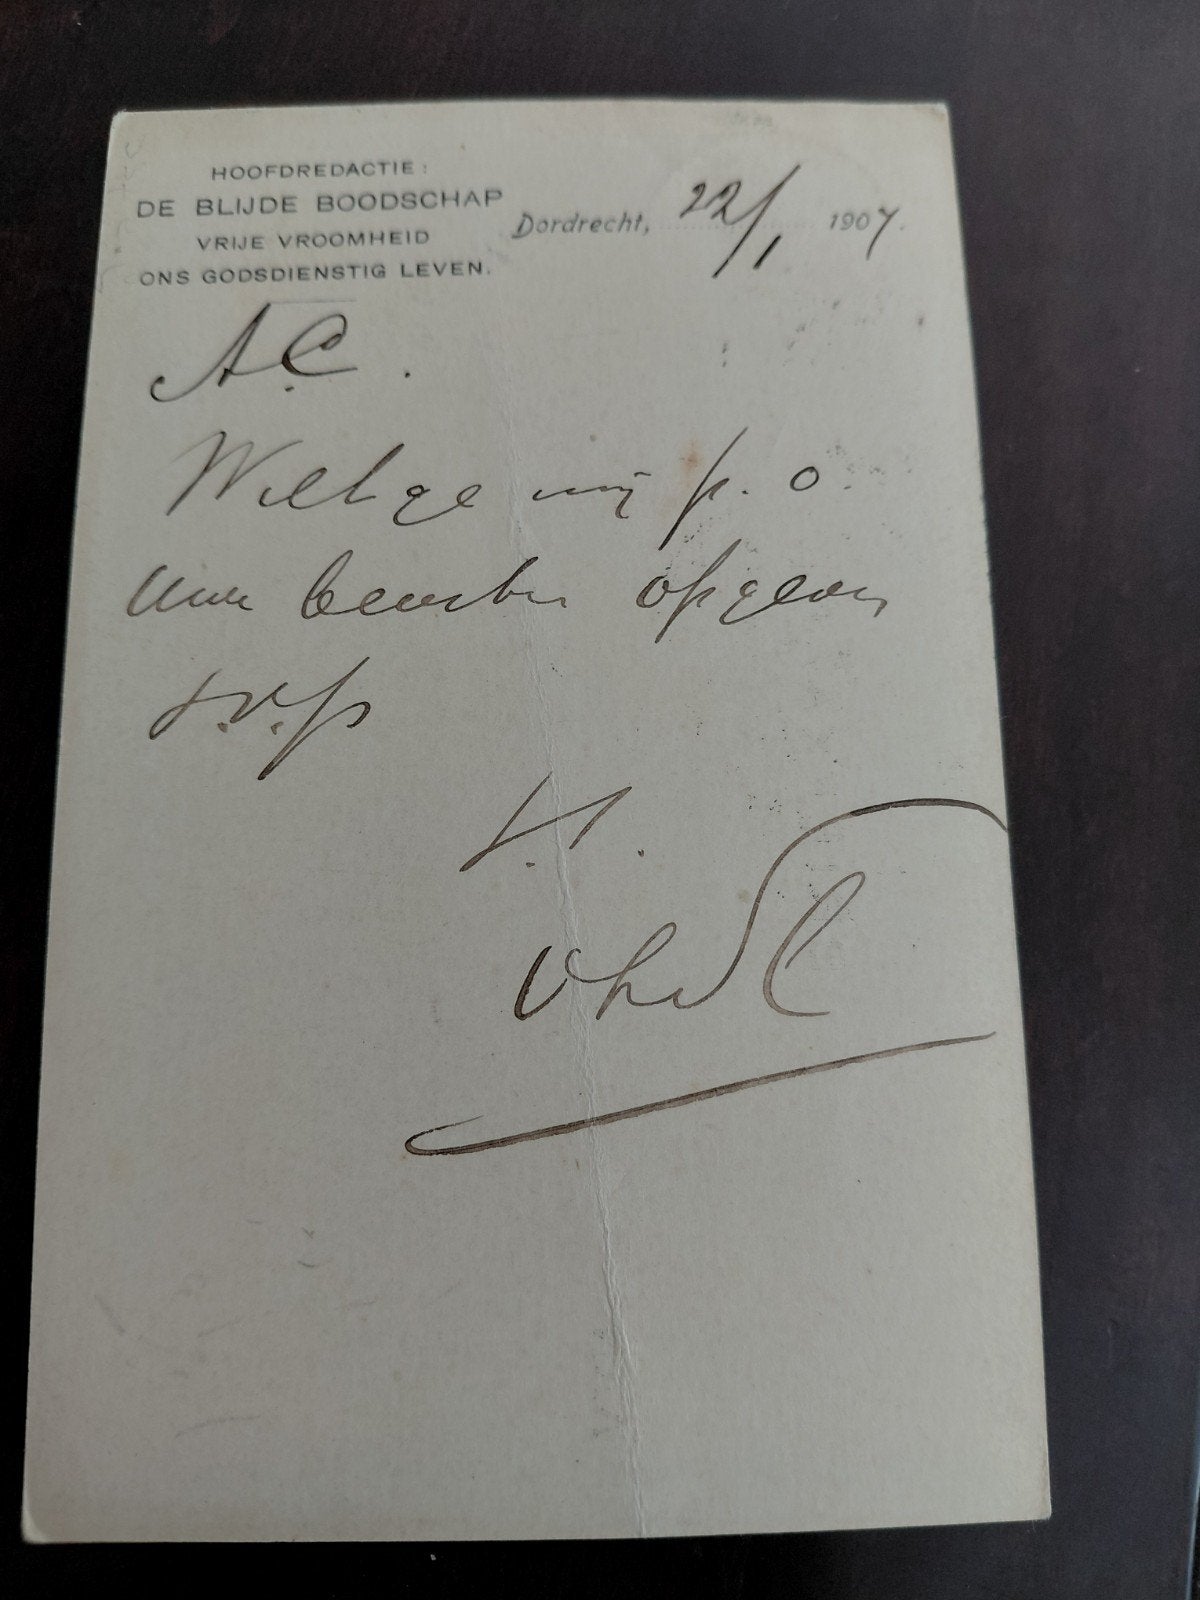 HOOFDREDACTIE:
DE BLIJDE BOODSCHAP
VRIJE VROOMHEID
ONS GODSDIENSTIG LEVEN.
Dordrecht, 22/1 1907.
A.C.
Wilt ge mij p. o.
Uwe opgeven
s.v.p
t.t.